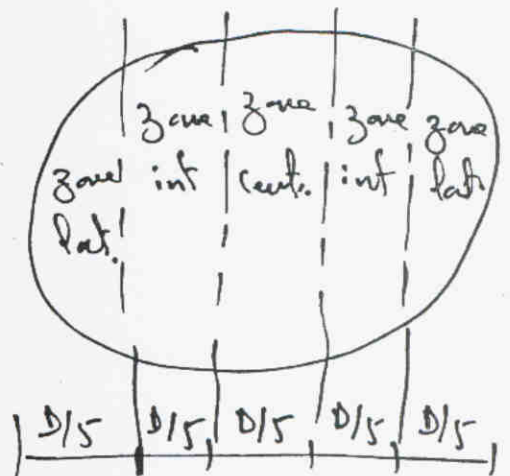 zone lat.
zone int
zone cent.
zone int
zone lat.
D/5 D/5 D/5 D/5 D/5